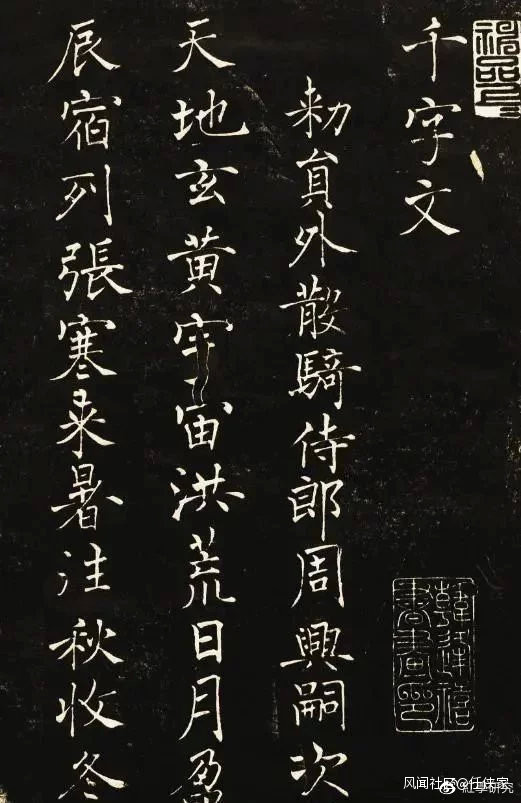 千字文
勑貟外散騎侍郎周興嗣次
天地玄黄宇宙洪荒日月盈
辰宿列張寒来暑往秋收冬
韓逢禧書畫印
风闻社区